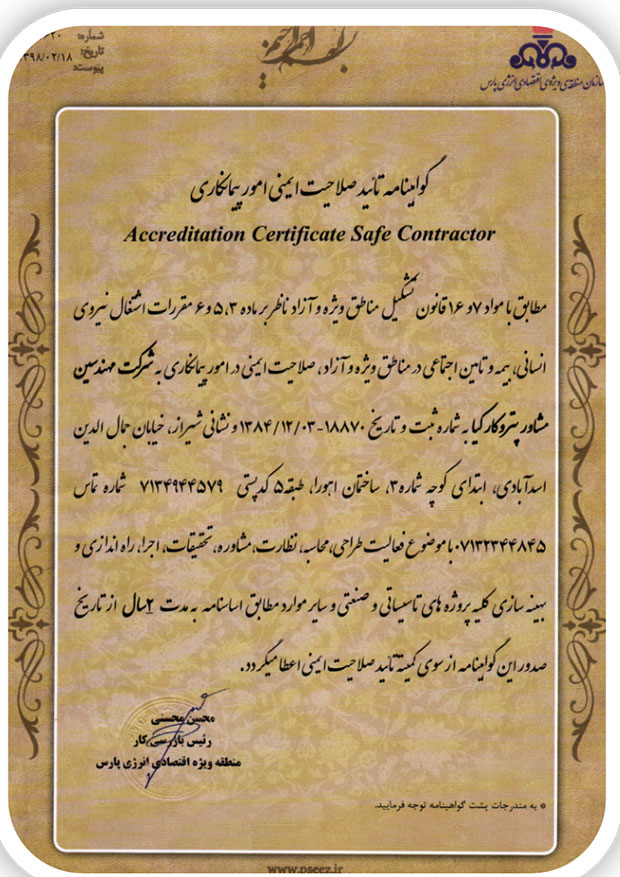 شماره:
تاریخ: ۳۹۸/۰۲/۱۸
پیوست:
سازمان منطقه‌ی ویژه‌ی اقتصادی انرژی پارس
گواهینامه تائید صلاحیت ایمنی امور پیمانکاری
Accreditation Certificate Safe Contractor
مطابق با مواد ۷ و ۱۶ قانون تشکیل مناطق ویژه و آزاد ناظر بر ماده ۳، ۵ و ۶ مقررات اشتغال نیروی
انسانی، بیمه و تامین اجتماعی در مناطق ویژه و آزاد، صلاحیت ایمنی در امور پیمانکاری به شرکت مهندسین
مشاور پتروکار کیا به شماره ثبت و تاریخ ۱۸۸۷۰-۱۳۸۴/۱۲/۰۳ و نشانی شیراز، خیابان جمال الدین
اسدآبادی، ابتدای کوچه شماره ۳، ساختمان اهورا، طبقه ۵ کدپستی ۷۱۳۴۹۴۴۵۷۹ شماره تماس
۰۷۱۳۲۳۴۴۸۴۵ با موضوع فعالیت طراحی، محاسبه، نظارت، مشاوره، تحقیقات، اجرا، راه اندازی و
بهینه سازی کلیه پروژه های تاسیساتی و صنعتی و سایر موارد مطابق اساسنامه به مدت ۲ سال از تاریخ
صدور این گواهینامه از سوی کمیته تائید صلاحیت ایمنی اعطا میگردد.
محسن محسنی
رئیس بازرسی کار
منطقه ویژه اقتصادی انرژی پارس
* به مندرجات پشت گواهینامه توجه فرمایید.
www.pseez.ir